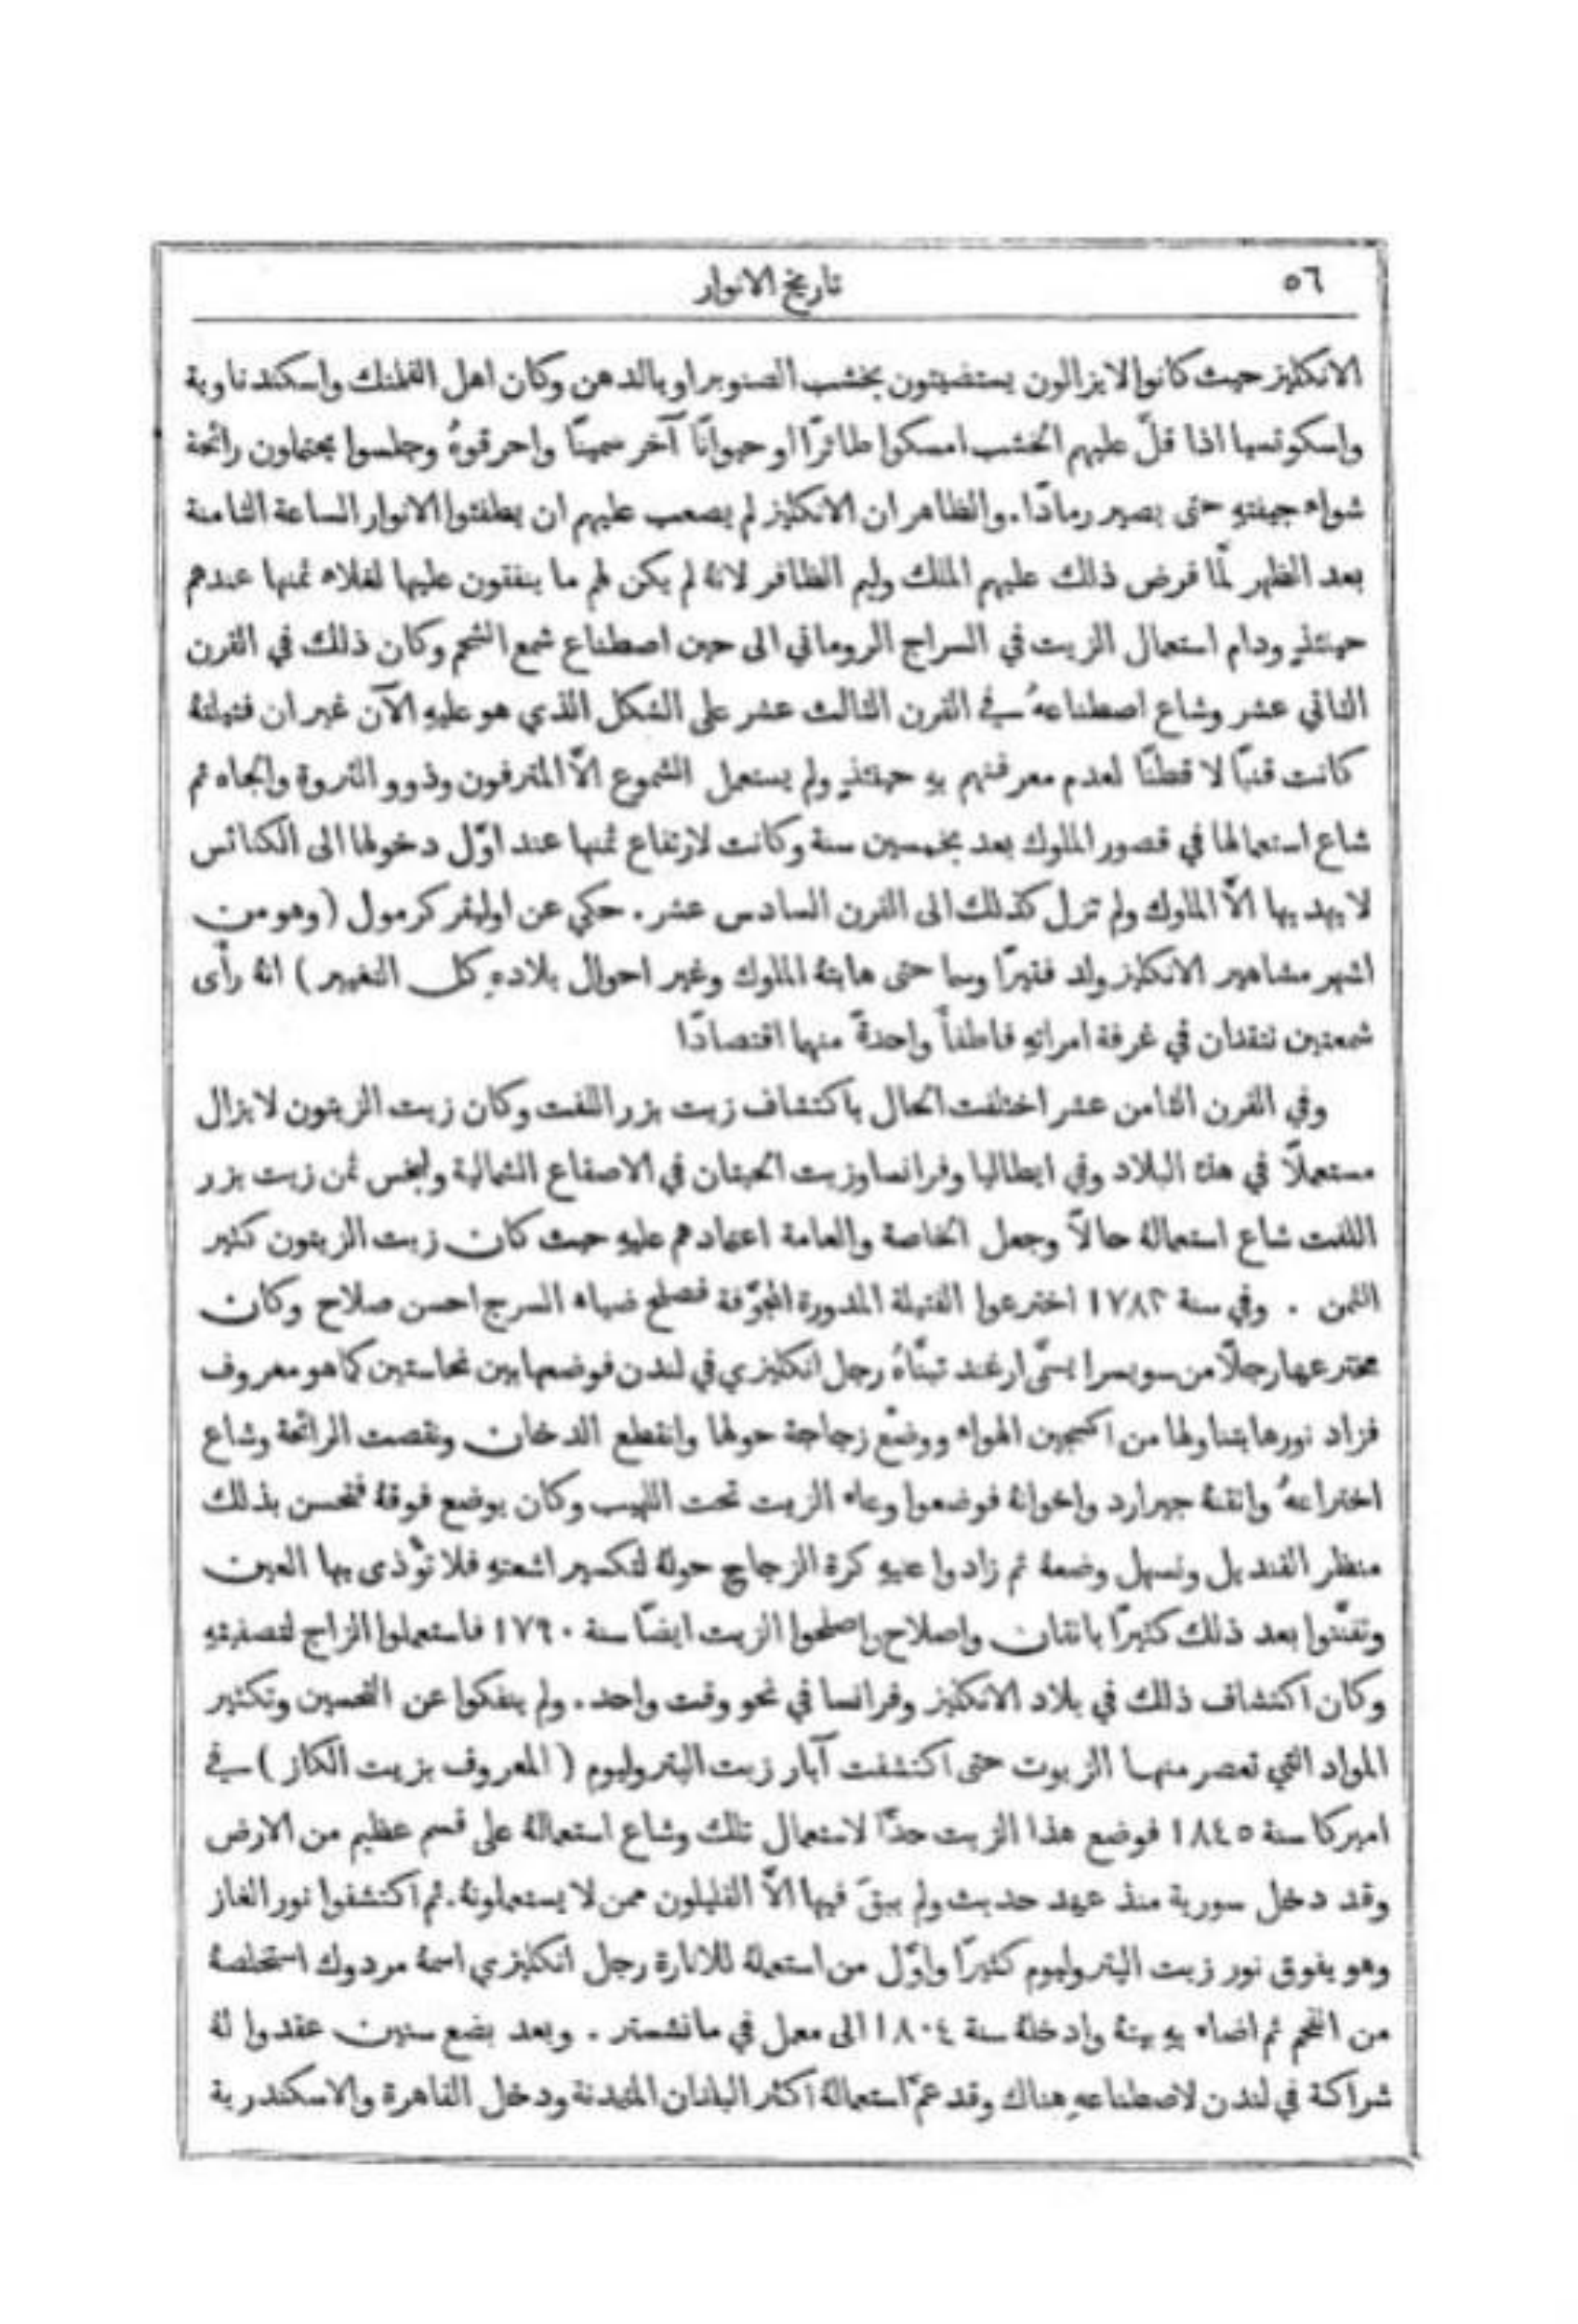 ٥٦
تاريخ الانوار
الانكليز حيث كانوا لا يزالون يستضيئون بخشب الصنوبر او بالدهن وكان اهل الفلمنك واسكندناوية
واسكوتسيا اذا قلَّ عليهم الخشب امسكوا طائرًا او حيوانًا آخر سمينًا واحرقوهُ وجلسوا يحتملون رائحة
شواء جيفتهِ حتى يصير رمادًا. والظاهر ان الانكليز لم يصعب عليهم ان يطفئوا الانوار الساعة الثامنة
بعد الظهر لمَّا فرض ذلك عليهم الملك وليم الظافر لانهُ لم يكن لهم ما ينفقون عليها لغلاء ثمنها عندهم
حينئذٍ ودام استعمال الزيت في السراج الروماني الى حين اصطناع شمع الشحم وكان ذلك في القرن
الثاني عشر وشاع اصطناعهُ في القرن الثالث عشر على الشكل الذي هو عليهِ الآن غير ان فتيلتهُ
كانت قنبًا لا قطنًا لعدم معرفتهم بهِ حينئذٍ ولم يستعمل الشموع الَّا المترفون وذوو الثروة والجاه ثم
شاع استعمالها في قصور الملوك بعد بخمسين سنة وكانت لارتفاع ثمنها عند اوَّل دخولها الى الكنائس
لا يهديها الَّا الملوك ولم تزل كذلك الى القرن السادس عشر. حكي عن اوليفر كرمول (وهو من
اشهر مشاهير الانكليز ولد فقيرًا وسما حتى هابتهُ الملوك وغير احوال بلادهِ كل التغيير) انهُ رأى
شمعتين تتقدان في غرفة امراتهِ فاطفأ واحدةً منهما اقتصادًا
وفي القرن الثامن عشر اختلفت الحال باكتشاف زيت بزر اللفت وكان زيت الزيتون لا يزال
مستعملًا في هذه البلاد وفي ايطاليا وفرانسا وزيت الحيتان في الاصقاع الشمالية ولبخس ثمن زيت بزر
اللفت شاع استعمالهُ حالًا وجعل الخاصة والعامة اعتمادهم عليهِ حيث كان زيت الزيتون كثير
الثمن . وفي سنة ١٧٨٣ اخترعوا الفتيلة المدورة المجوَّفة فصلح ضياء السرج احسن صلاح وكان
مخترعها رجلًا من سويسرا يسمَّى ارغند تبنَّاهُ رجل انكليزي في لندن فوضعها بين نحاستين كما هو معروف
فزاد نورها بتناولها من اكسجين الهواء ووضع زجاجة حولها وانقطع الدخان ونقصت الرائحة وشاع
اختراعهُ واتقنهُ جيرارد واخوانهُ فوضعوا وعاء الزيت تحت اللهيب وكان يوضع فوقهُ فتحسن بذلك
منظر القنديل وتسهل وضعهُ ثم زادوا عليهِ كرة الزجاج حولهُ لتكسير اشعتهِ فلا تؤْذى بها العين
وتفنَّنوا بعد ذلك كثيرًا باتقان واصلاح واصلحوا الزيت ايضًا سنة ١٧٩٠ فاستعملوا الزاج لتصفيتهِ
وكان اكتشاف ذلك في بلاد الانكليز وفرانسا في نحو وقت واحد. ولم ينفكوا عن التحسين وتكثير
المواد التي تعصر منها الزيوت حتى اكتشفت آبار زيت البتروليوم (المعروف بزيت الكاز) في
اميركا سنة ١٨٤٥ فوضع هذا الزيت حدًّا لاستعمال تلك وشاع استعمالهُ على قسم عظيم من الارض
وقد دخل سورية منذ عهد حديث ولم يبقَ فيها الَّا القليلون ممن لا يستعملونهُ. ثم اكتشفوا نور الغاز
وهو يفوق نور زيت البتروليوم كثيرًا واوَّل من استعملهُ للانارة رجل انكليزي اسمهُ مردوك استخلصهُ
من الفحم ثم اضاء بهِ بيتهُ وادخلهُ سنة ١٨٠٤ الى معمل في مانشستر . وبعد بضع سنين عقدوا لهُ
شراكة في لندن لاصطناعهِ هناك وقد عمَّ استعمالهُ اكثر البلدان المتمدنة ودخل القاهرة والاسكندرية